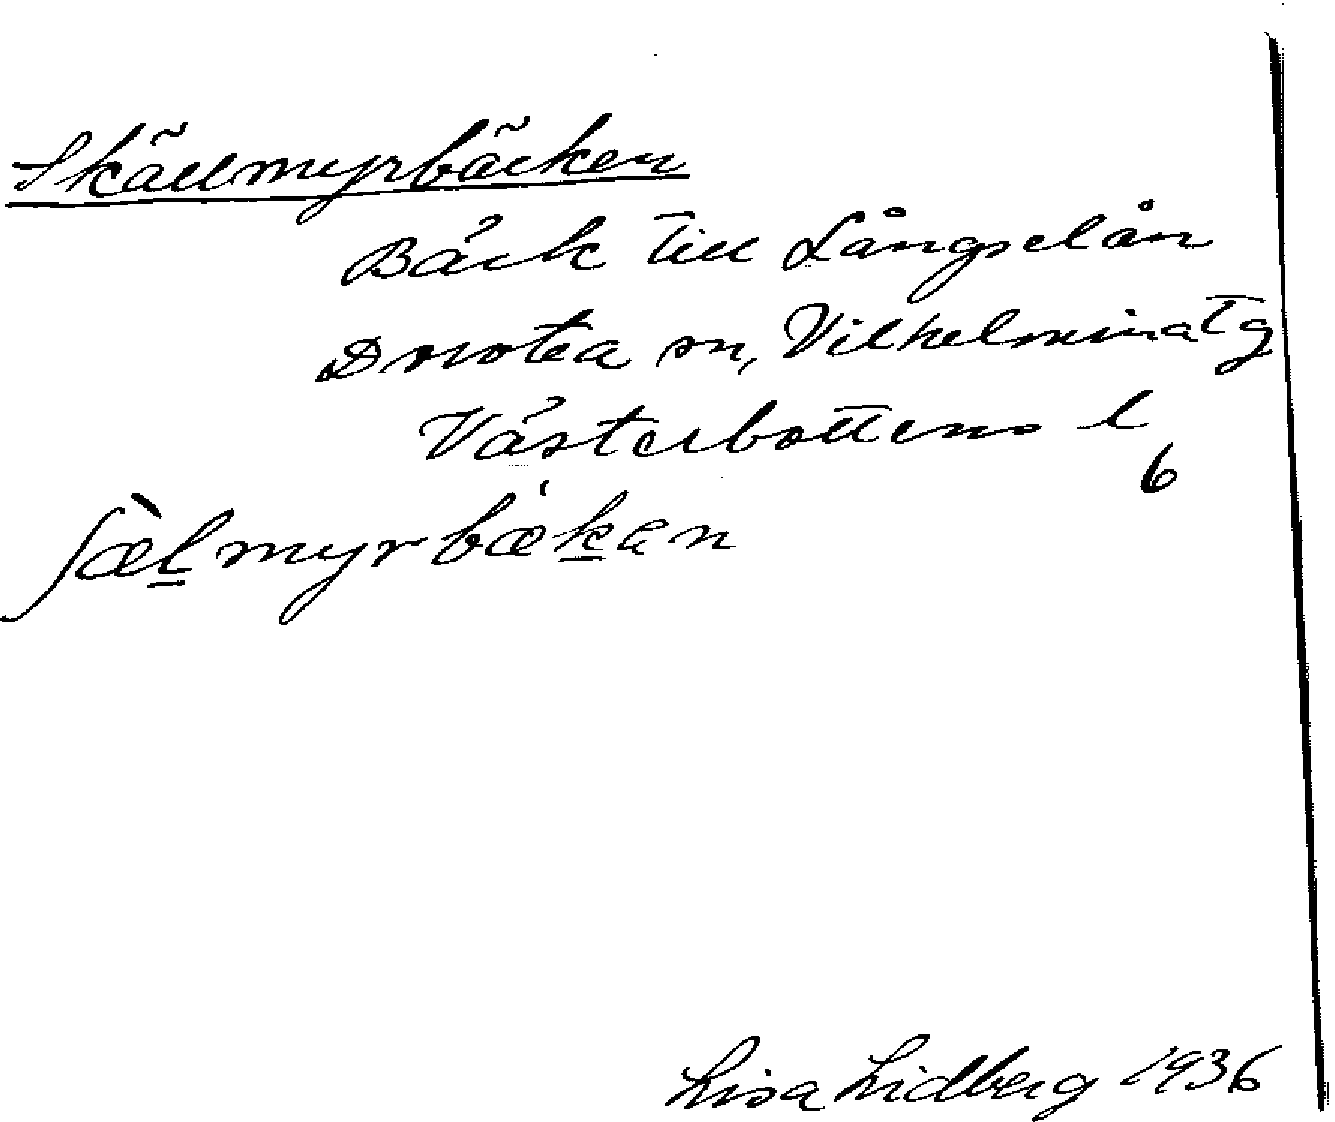 Skällmyrbäcken
Bäck till Långselån
Dorotea sn, Vilhelmina tg
Västerbottens l
6
ʃæ̀l̲myrbækəॱn
Lisa Lidberg 1936